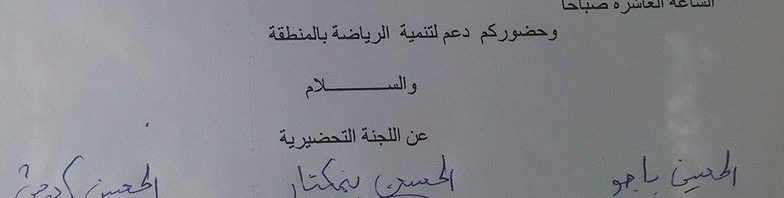 الساعة العاشرة صباحا
وحضوركم دعم لتنمية الرياضة بالمنطقة
والســـــــلام
عن اللجنة التحضيرية
الحسين باجو الحسين بنمكتار الحسين